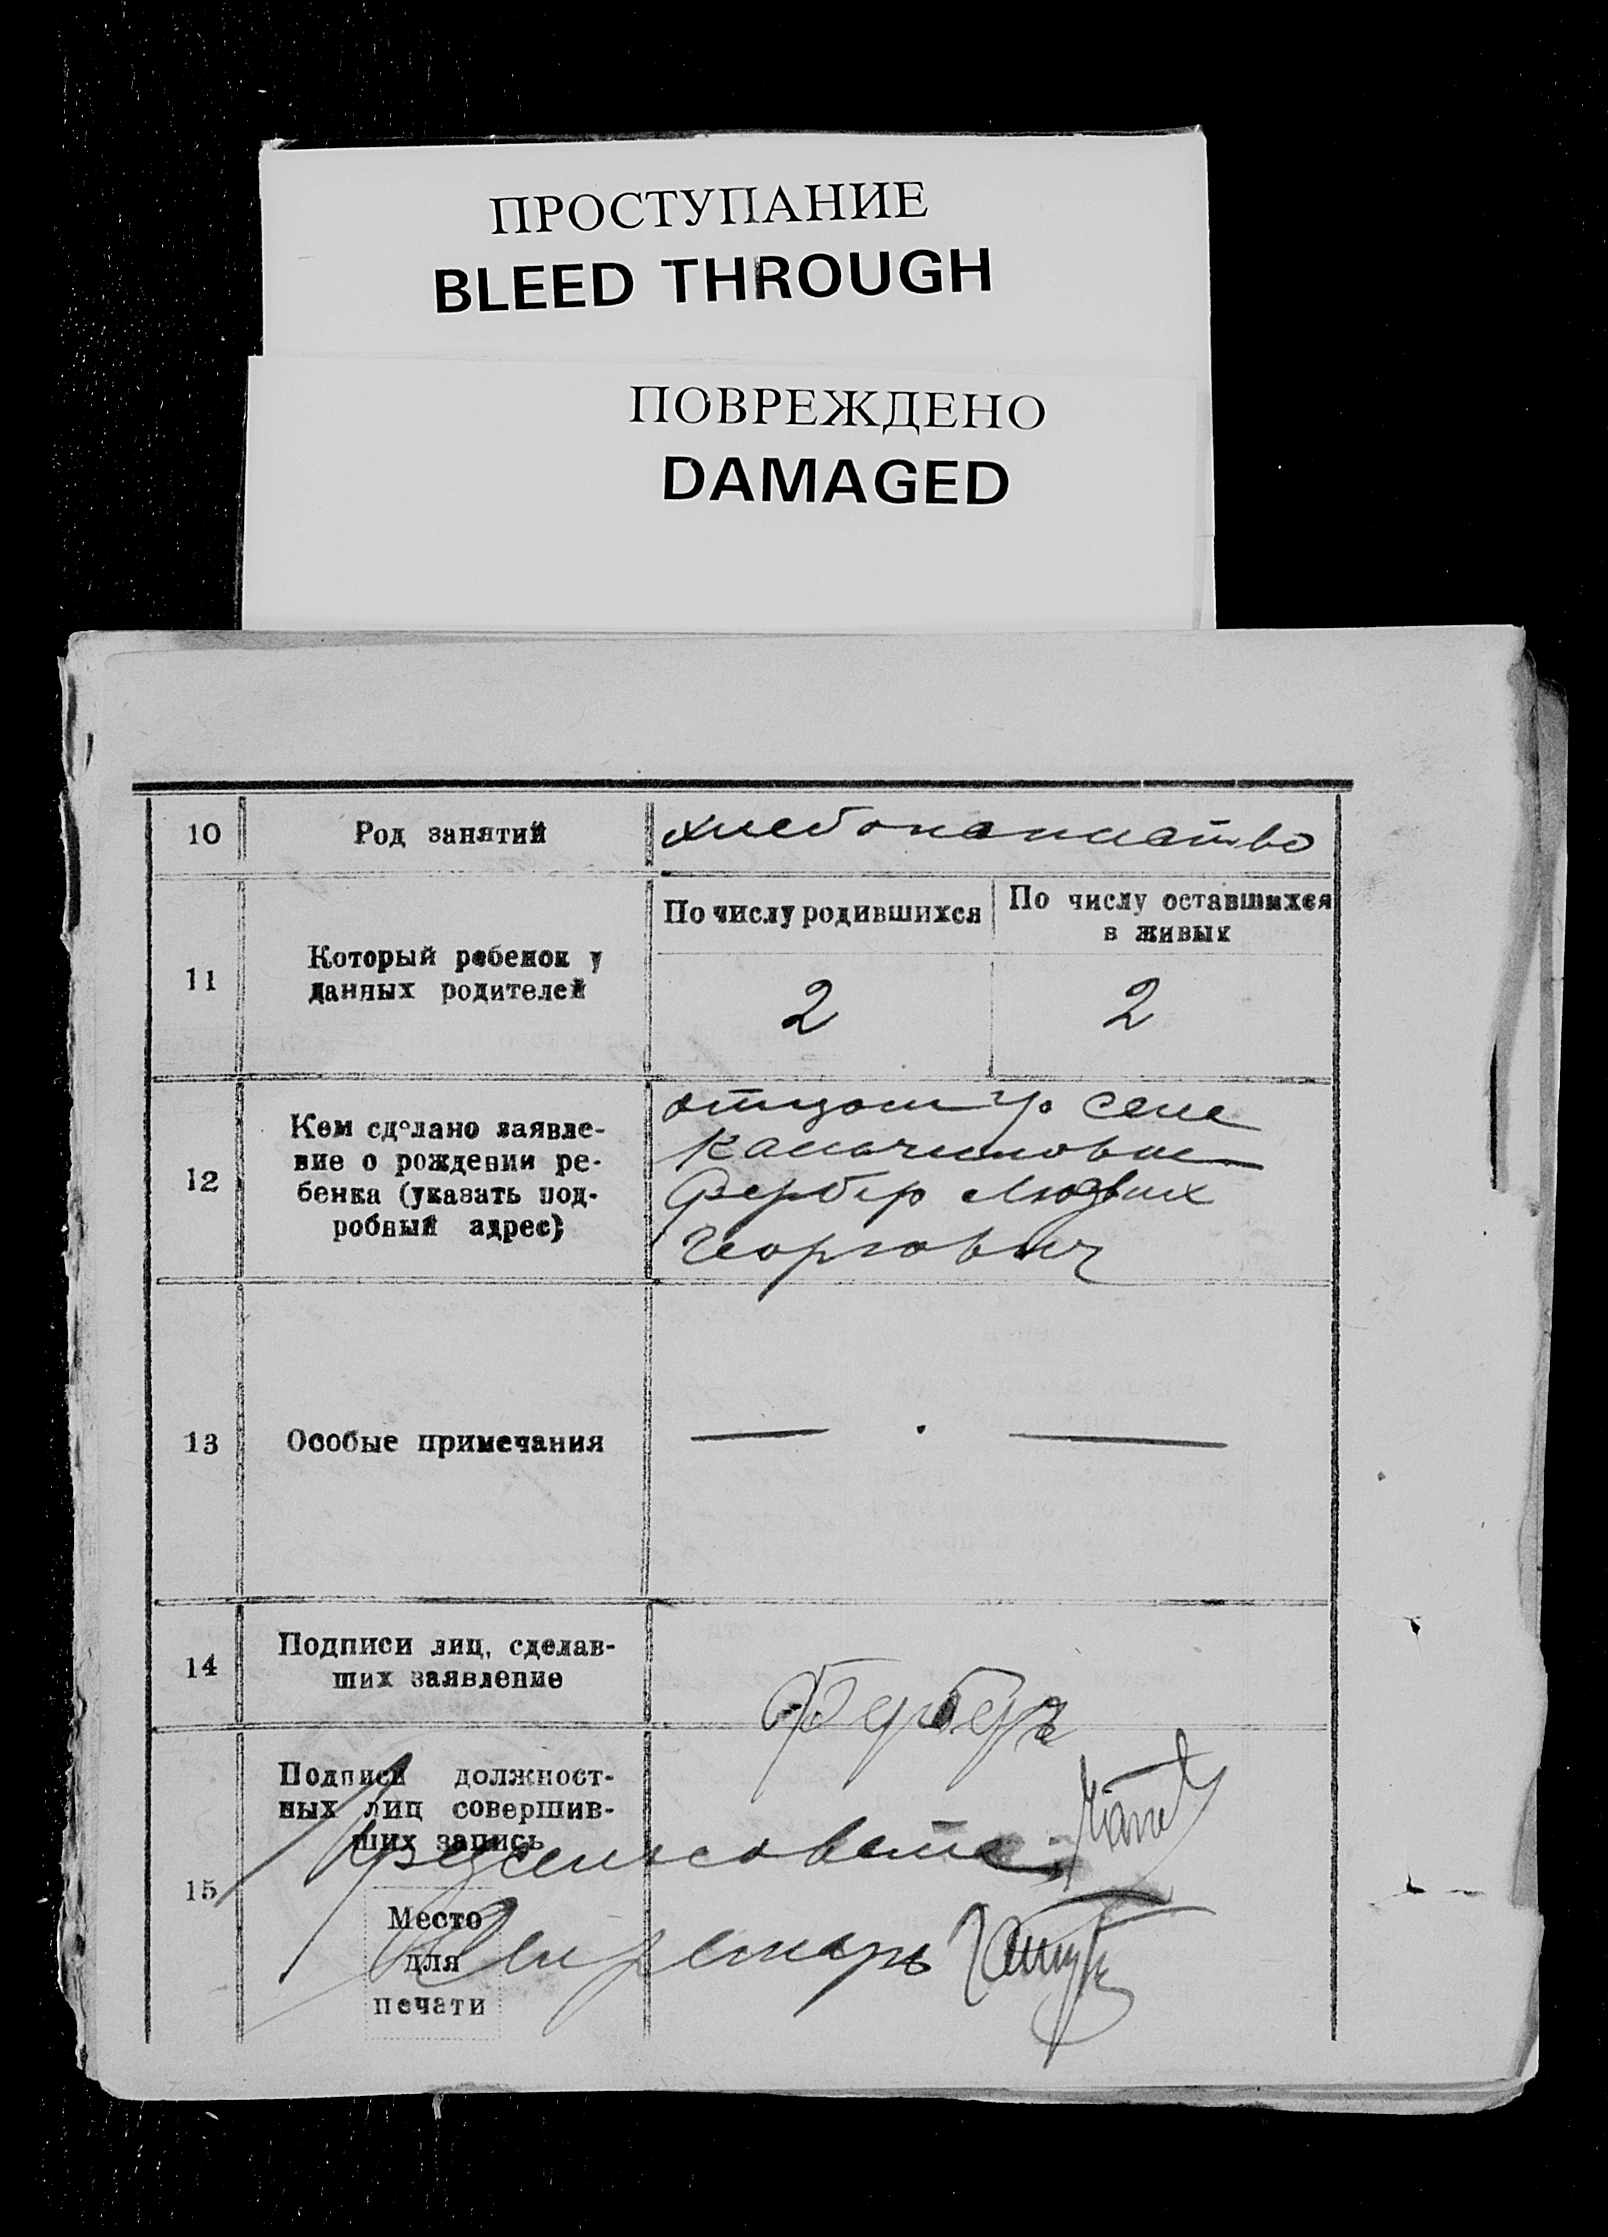 ПРОСТУПАНИЕ
BLEED THROUGH
ПОВРЕЖДЕНО
DAMAGED
10 Род занятий хлебопашество
11 Который ребенок у данных родителей
По числу родившихся
По числу оставшихся
в живых
2 2
12 Кем сделано заявле-
ние о рождении ре-
бенка (указать под-
робный адрес)
отцом гр. села
Фербер Людвих
Георгович
13 Особые примечания — . —
14 Подписи лиц, сделав-
ших заявление
Фербер
15 Подписи должност-
ных лиц совершив-
ших запись
Предсельсовета
Место
для
печати
Секретарь